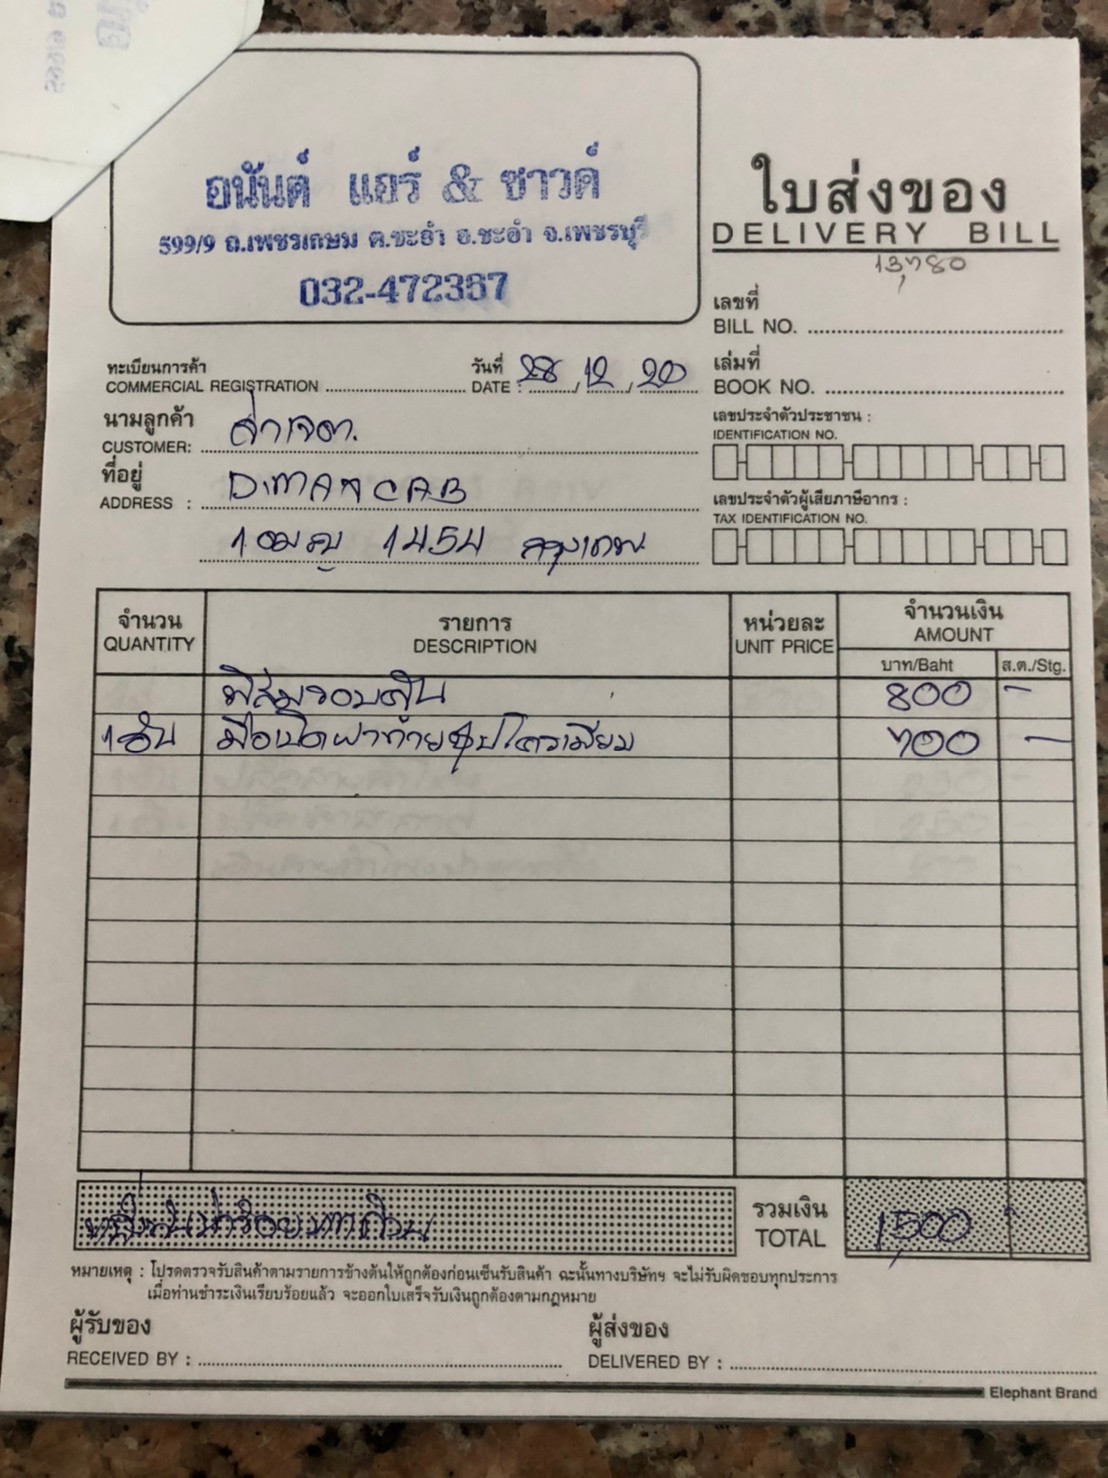 อนันต์ แอร์ & ซาวด์
599/9 ถ.เพชรเกษม ต.ชะอำ อ.ชะอำ จ.เพชรบุรี
032-472367
ใบส่งของ
DELIVERY BILL
13,780
เลขที่
BILL NO.
ทะเบียนการค้า
COMMERCIAL REGISTRATION
วันที่
DATE : 28, 12, 20
เล่มที่
BOOK NO.
นามลูกค้า
CUSTOMER:
เลขประจำตัวประชาชน :
IDENTIFICATION NO.
ที่อยู่
ADDRESS :
เลขประจำตัวผู้เสียภาษีอากร :
TAX IDENTIFICATION NO.
1454 กรุงเทพ
จำนวน
QUANTITY
รายการ
DESCRIPTION
หน่วยละ
UNIT PRICE
จำนวนเงิน
AMOUNT
บาท/Baht ส.ต./Stg.
ฟิล์มรอบคัน 800 -
1 อัน มือเปิดฝาท้ายชุปโครเมียม 700 -
หนึ่งพันห้าร้อยบาทถ้วน
รวมเงิน
TOTAL 1,500
หมายเหตุ : โปรดตรวจรับสินค้าตามรายการข้างต้นให้ถูกต้องก่อนเซ็นรับสินค้า ฉะนั้นทางบริษัทฯ จะไม่รับผิดชอบทุกประการ
เมื่อท่านชำระเงินเรียบร้อยแล้ว จะออกใบเสร็จรับเงินถูกต้องตามกฎหมาย
ผู้รับของ
RECEIVED BY :
ผู้ส่งของ
DELIVERED BY :
Elephant Brand